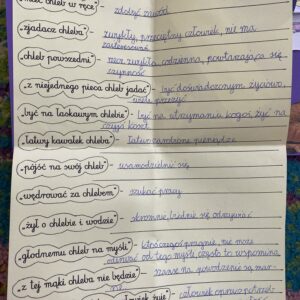 "mieć chleb w ręce" - zdobyć zawód
"zjadacz chleba" - zwykły, przeciętny człowiek, nie ma
zastosowań
"chleb powszedni" - rzecz zwykła, codzienna, powtarzająca się
czynność
"z niejednego pieca chleb jadać" - być doświadczonym życiowo,
wiele przeżyć
"być na łaskawym chlebie" - być na utrzymaniu kogoś, żyć na
czyjś koszt
"łatwy kawałek chleba" - łatwo zarobione pieniądze
"pójść na swój chleb" - usamodzielnić się
"wędrować za chlebem" - szukać pracy
"żyć o chlebie i wodzie" - skromnie, biednie się odżywiać
"głodnemu chleb na myśli" - ktoś czegoś pragnie, nie może
oderwać od tego myśli, często to wspomina
"z tej mąki chleba nie będzie" - szanse na powodzenie są mar-
żyje" - człowiek oprócz potrzeb